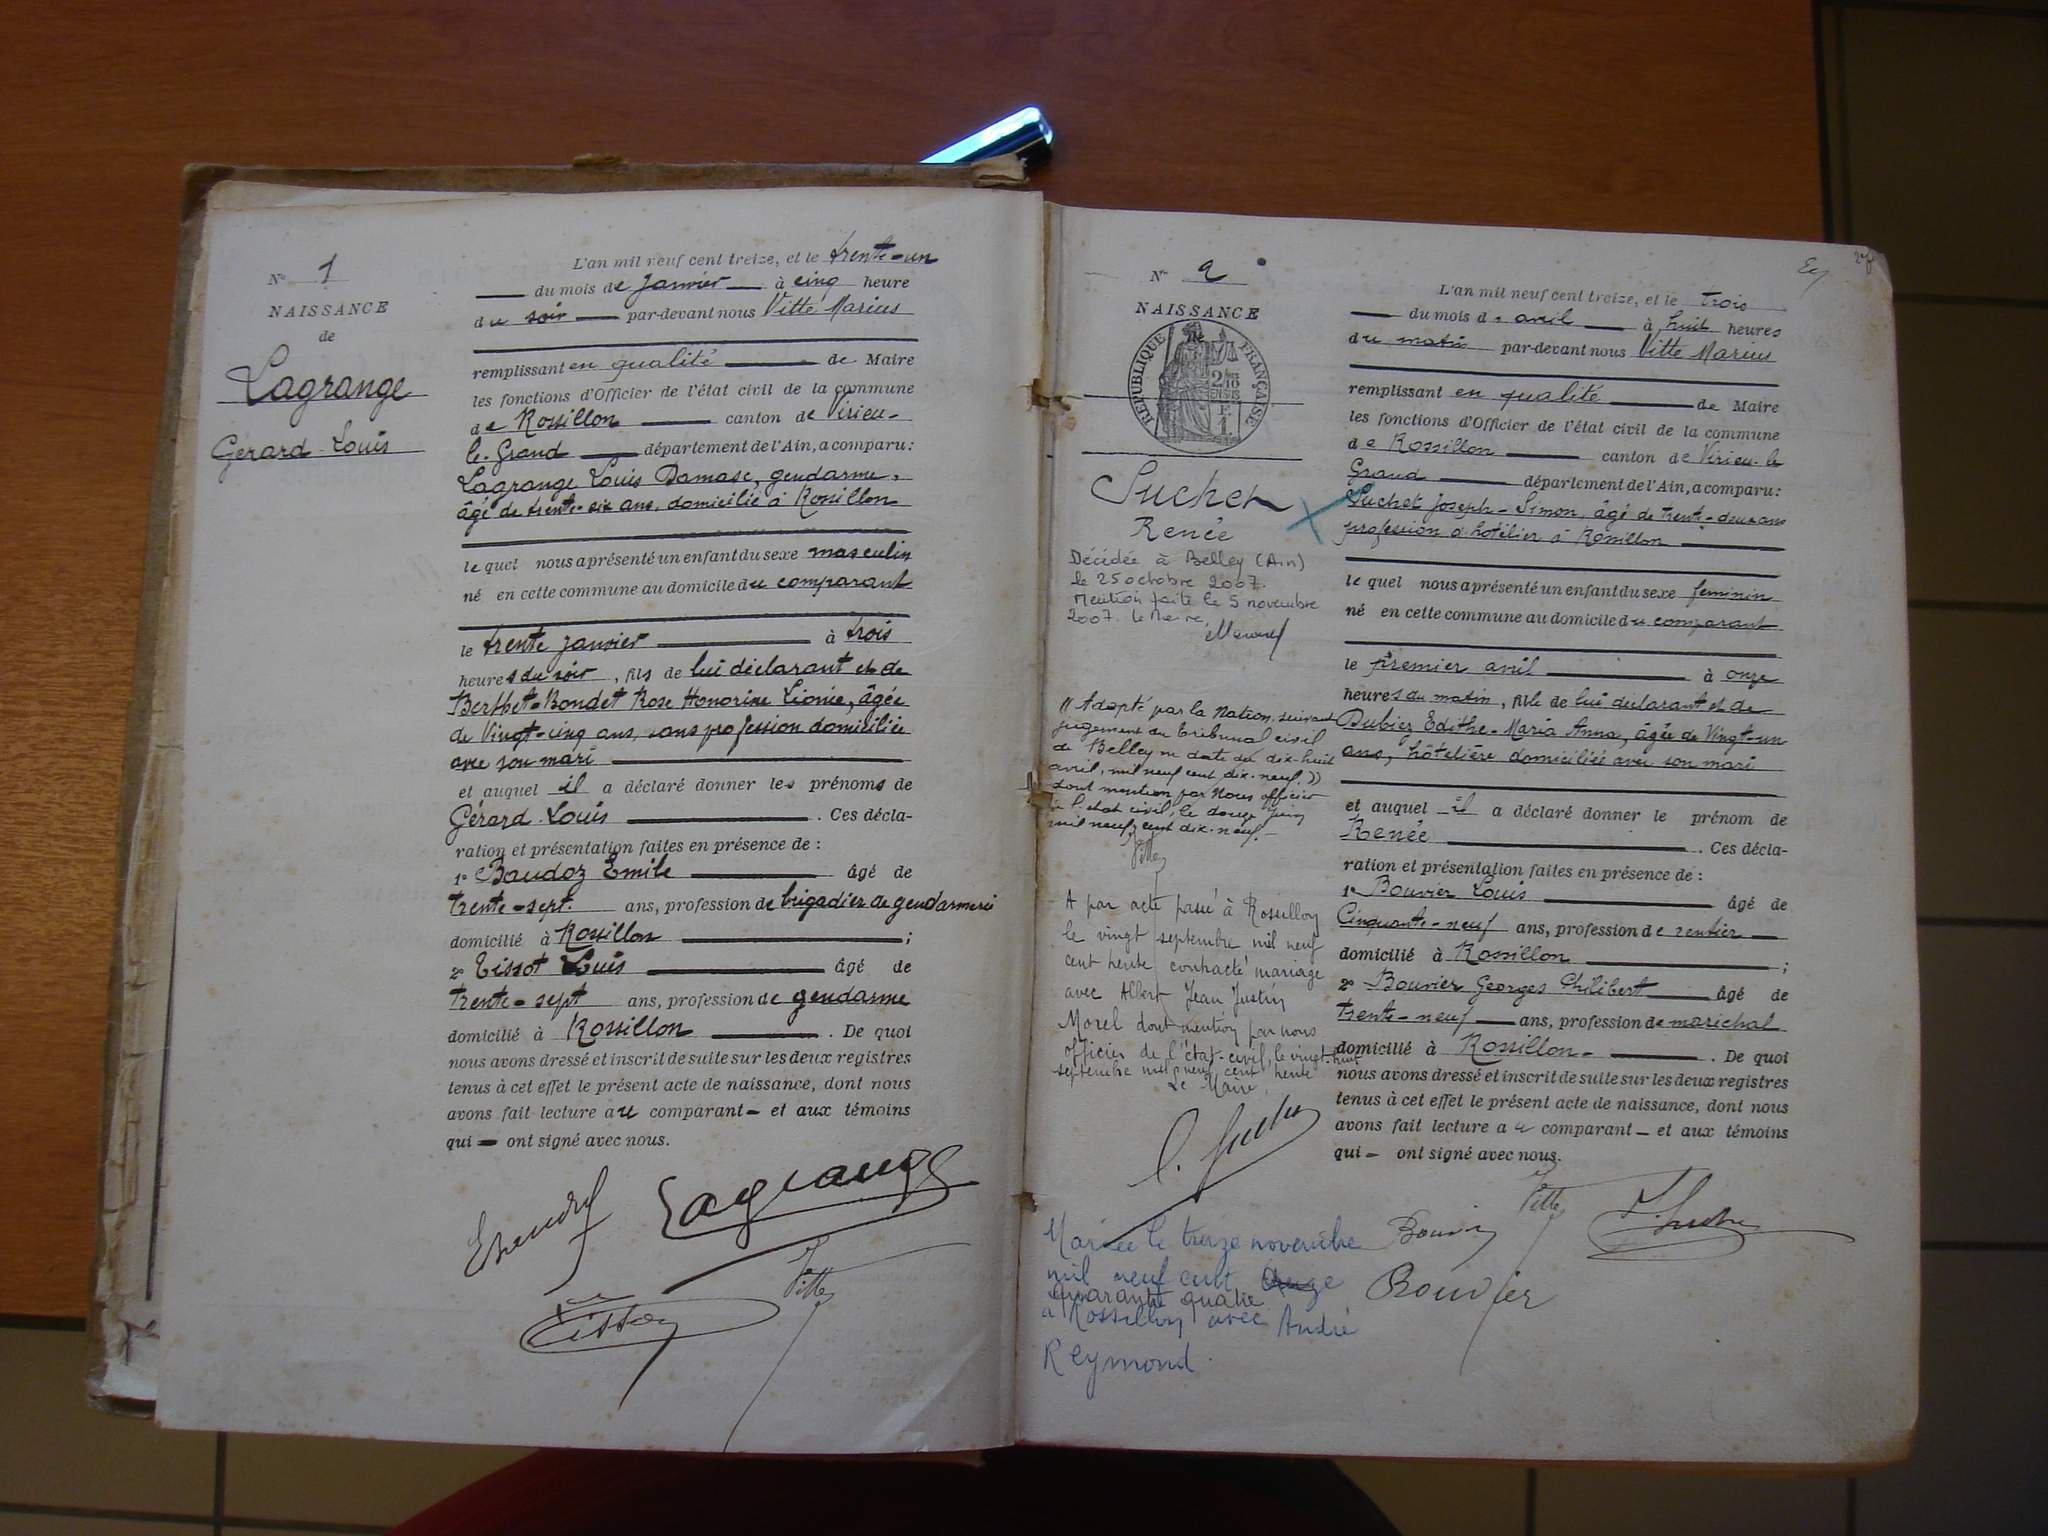 N° 1
NAISSANCE
de
Lagrange
Gérard Louis
L'an mil neuf cent treize, et le trente-un
du mois de Janvier à cinq heure
du soir par-devant nous Vitte Marius
remplissant en qualité de Maire
les fonctions d'Officier de l'état civil de la commune
de Rossillon canton de Virieu-
le-Grand département de l'Ain, a comparu:
Lagrange Louis Damase, gendarme,
âgé de trente-six ans, domicilié à Rossillon
le quel nous a présenté un enfant du sexe masculin
né en cette commune au domicile du comparant
le trente janvier à trois
heures du soir, fils de lui déclarant et de
Berthet-Bondet Rose Honorine Léonie, âgée
de Vingt-cinq ans, sans profession domiciliée
avec son mari
et auquel il a déclaré donner les prénoms de
Gérard Louis. Ces décla-
ration et présentation faites en présence de :
1° Baudoz Emile âgé de
trente-sept. ans, profession de brigadier de gendarmerie
domicilié à Rossillon ;
2° Tissot Louis âgé de
trente-sept ans, profession de gendarme
domicilié à Rossillon. De quoi
nous avons dressé et inscrit de suite sur les deux registres
tenus à cet effet le présent acte de naissance, dont nous
avons fait lecture au comparant - et aux témoins
qui - ont signé avec nous.
Lagrange
Vitte
Tissot
N° 2
NAISSANCE
RÉPUBLIQUE FRANÇAISE
Suchet
Renée
Décédée à Belley (Ain)
le 25 octobre 2007.
Mention faite le 5 novembre
2007. le Maire,
"Adopté par la Nation, suivant
jugement du tribunal civil
de Belley en date du dix-huit
avril, mil neuf cent dix-neuf."
dont mention par Nous officier
de l'état civil, le douze juin
mil neuf cent dix-neuf.-
Vitte
A par acte passé à Rossillon
le vingt septembre mil neuf
cent trente contracté mariage
avec Albert Jean Justin
Morel dont mention par nous
officier de l'état-civil, le vingt-huit
septembre mil neuf cent trente
Le Maire,
Mariée le treize novembre
mil neuf cent
quarante quatre
à Rossillon avec André
Reymond.
L'an mil neuf cent treize, et le trois
du mois d'avril à huit heures
du matin par-devant nous Vitte Marius
remplissant en qualité de Maire
les fonctions d'Officier de l'état civil de la commune
de Rossillon canton de Virieu-le
Grand département de l'Ain, a comparu:
Suchet Joseph-Simon, âgé de trente-deux ans
profession d'hôtelier à Rossillon
le quel nous a présenté un enfant du sexe feminin
né en cette commune au domicile du comparant
le premier avril à onze
heures du matin, fille de lui déclarant et de
Dubiez Edithe-Maria Anna, âgée de Vingt-un
ans, hôtelière domiciliée avec son mari
et auquel il a déclaré donner le prénom de
Renée. Ces décla-
ration et présentation faites en présence de :
1° Bouvier Louis âgé de
Cinquante-neuf ans, profession de rentier
domicilié à Rossillon ;
2° Bouvier Georges Philibert âgé de
trente-neuf ans, profession de maréchal
domicilié à Rossillon-. De quoi
nous avons dressé et inscrit de suite sur les deux registres
tenus à cet effet le présent acte de naissance, dont nous
avons fait lecture au comparant - et aux témoins
qui - ont signé avec nous.
Vitte
Bouvier
Bouvier